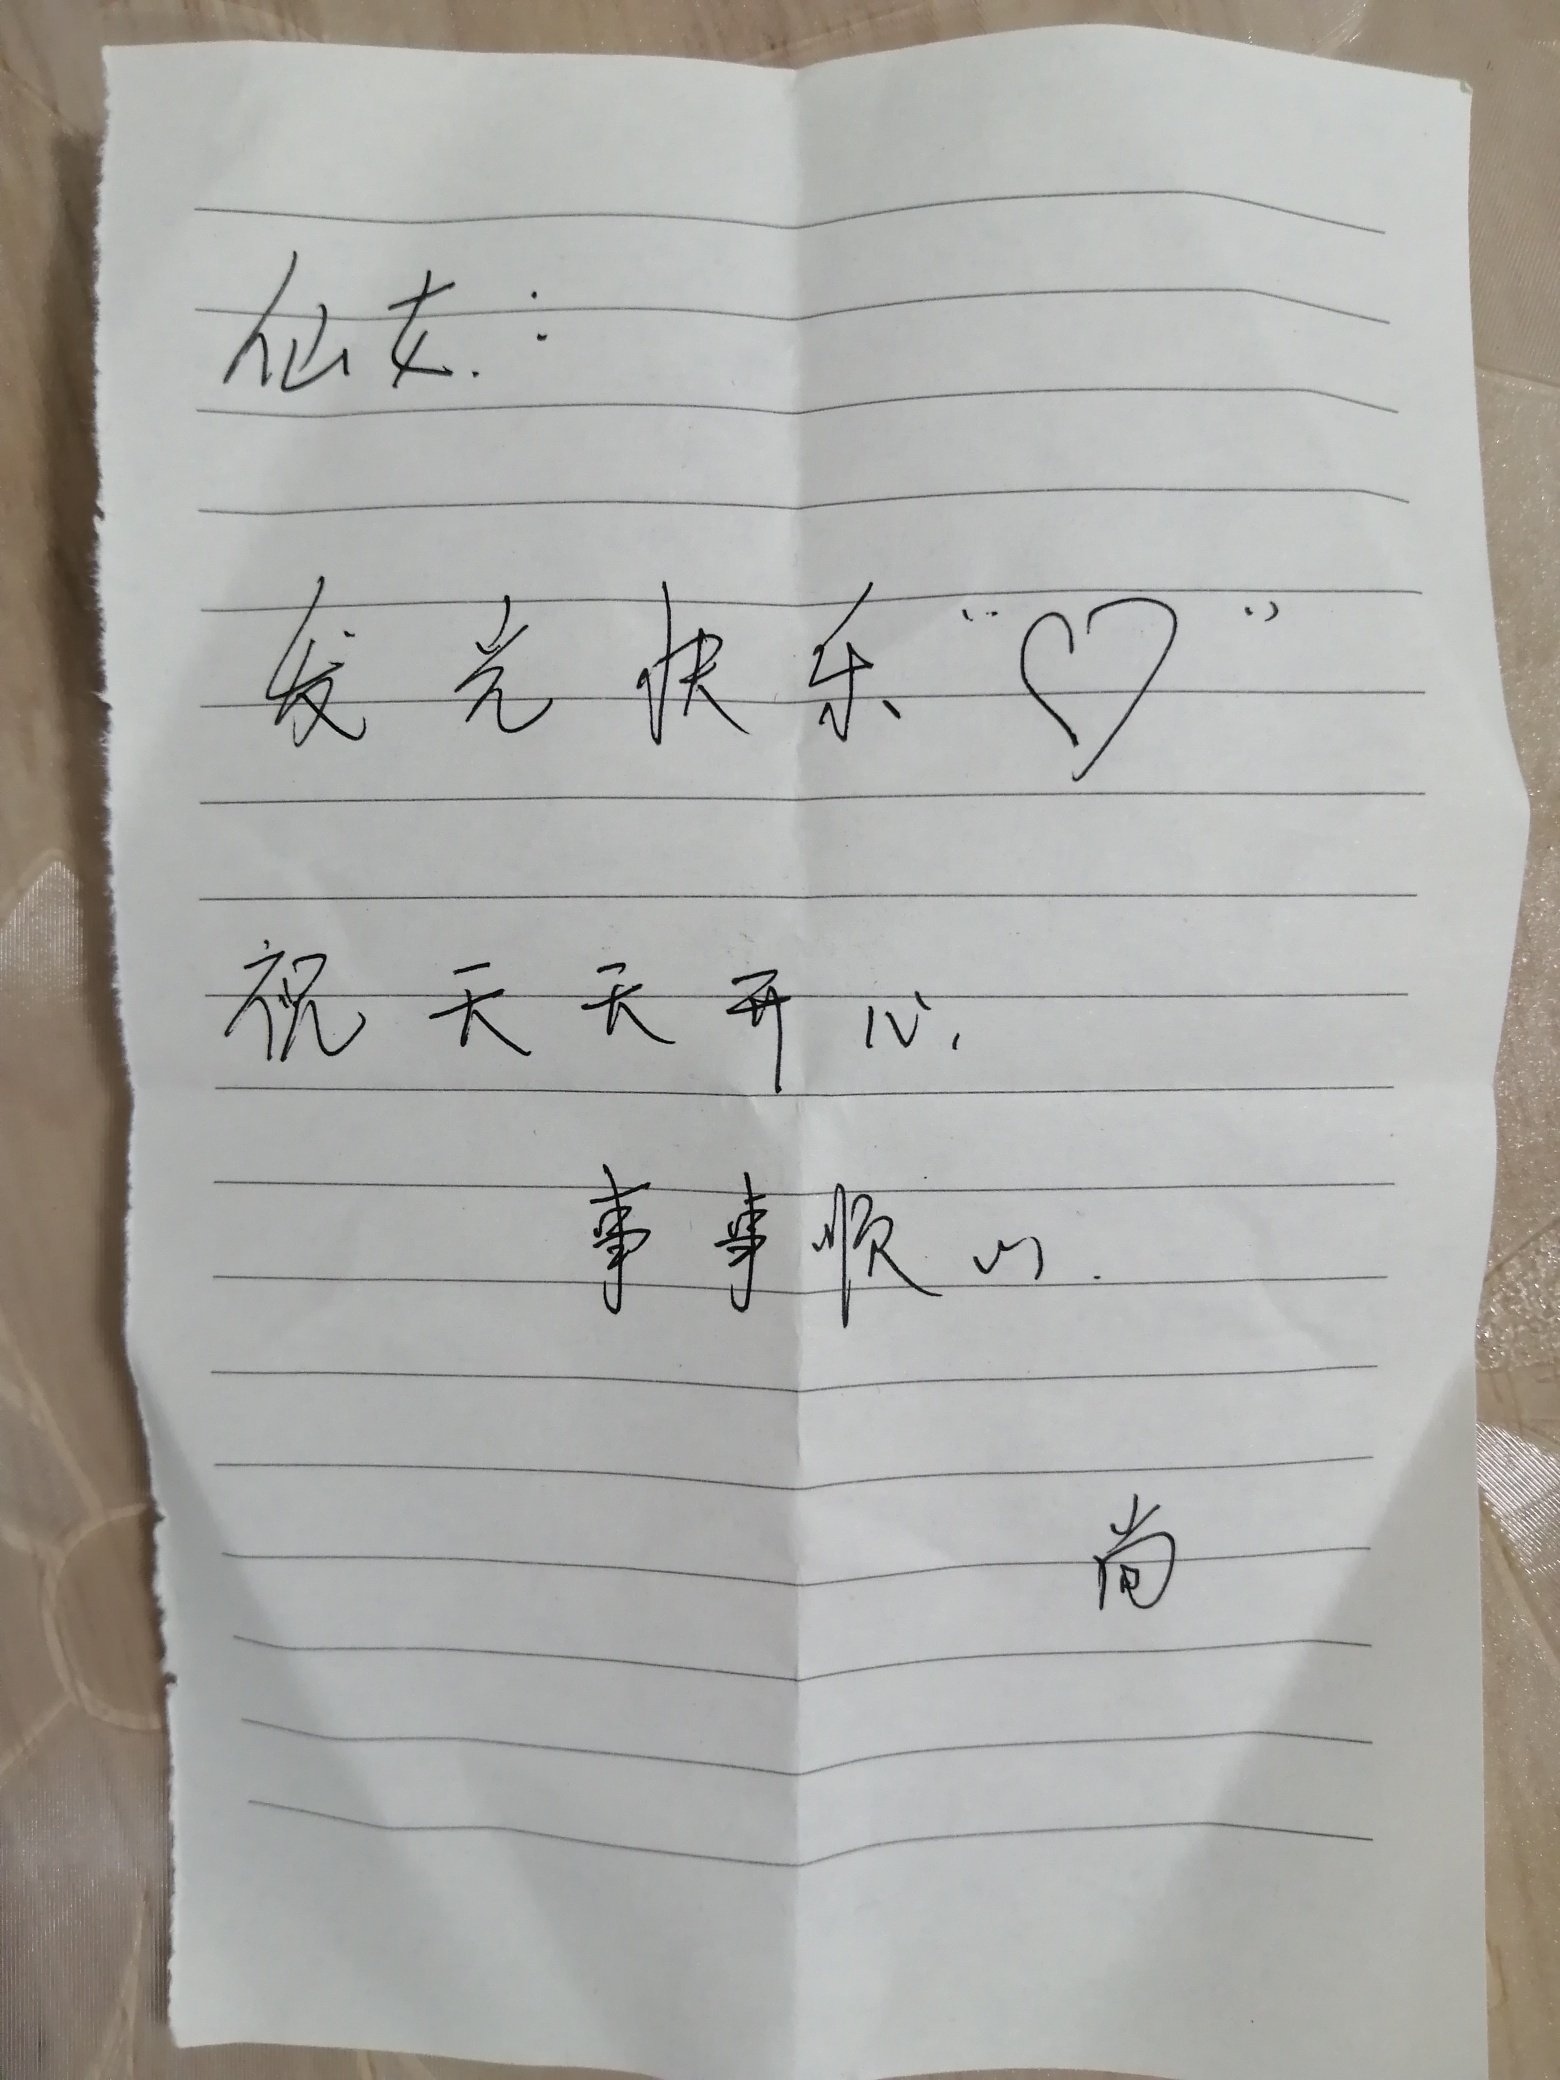 仙女：
发光快乐“♡”
祝天天开心，
事事顺心.
尚